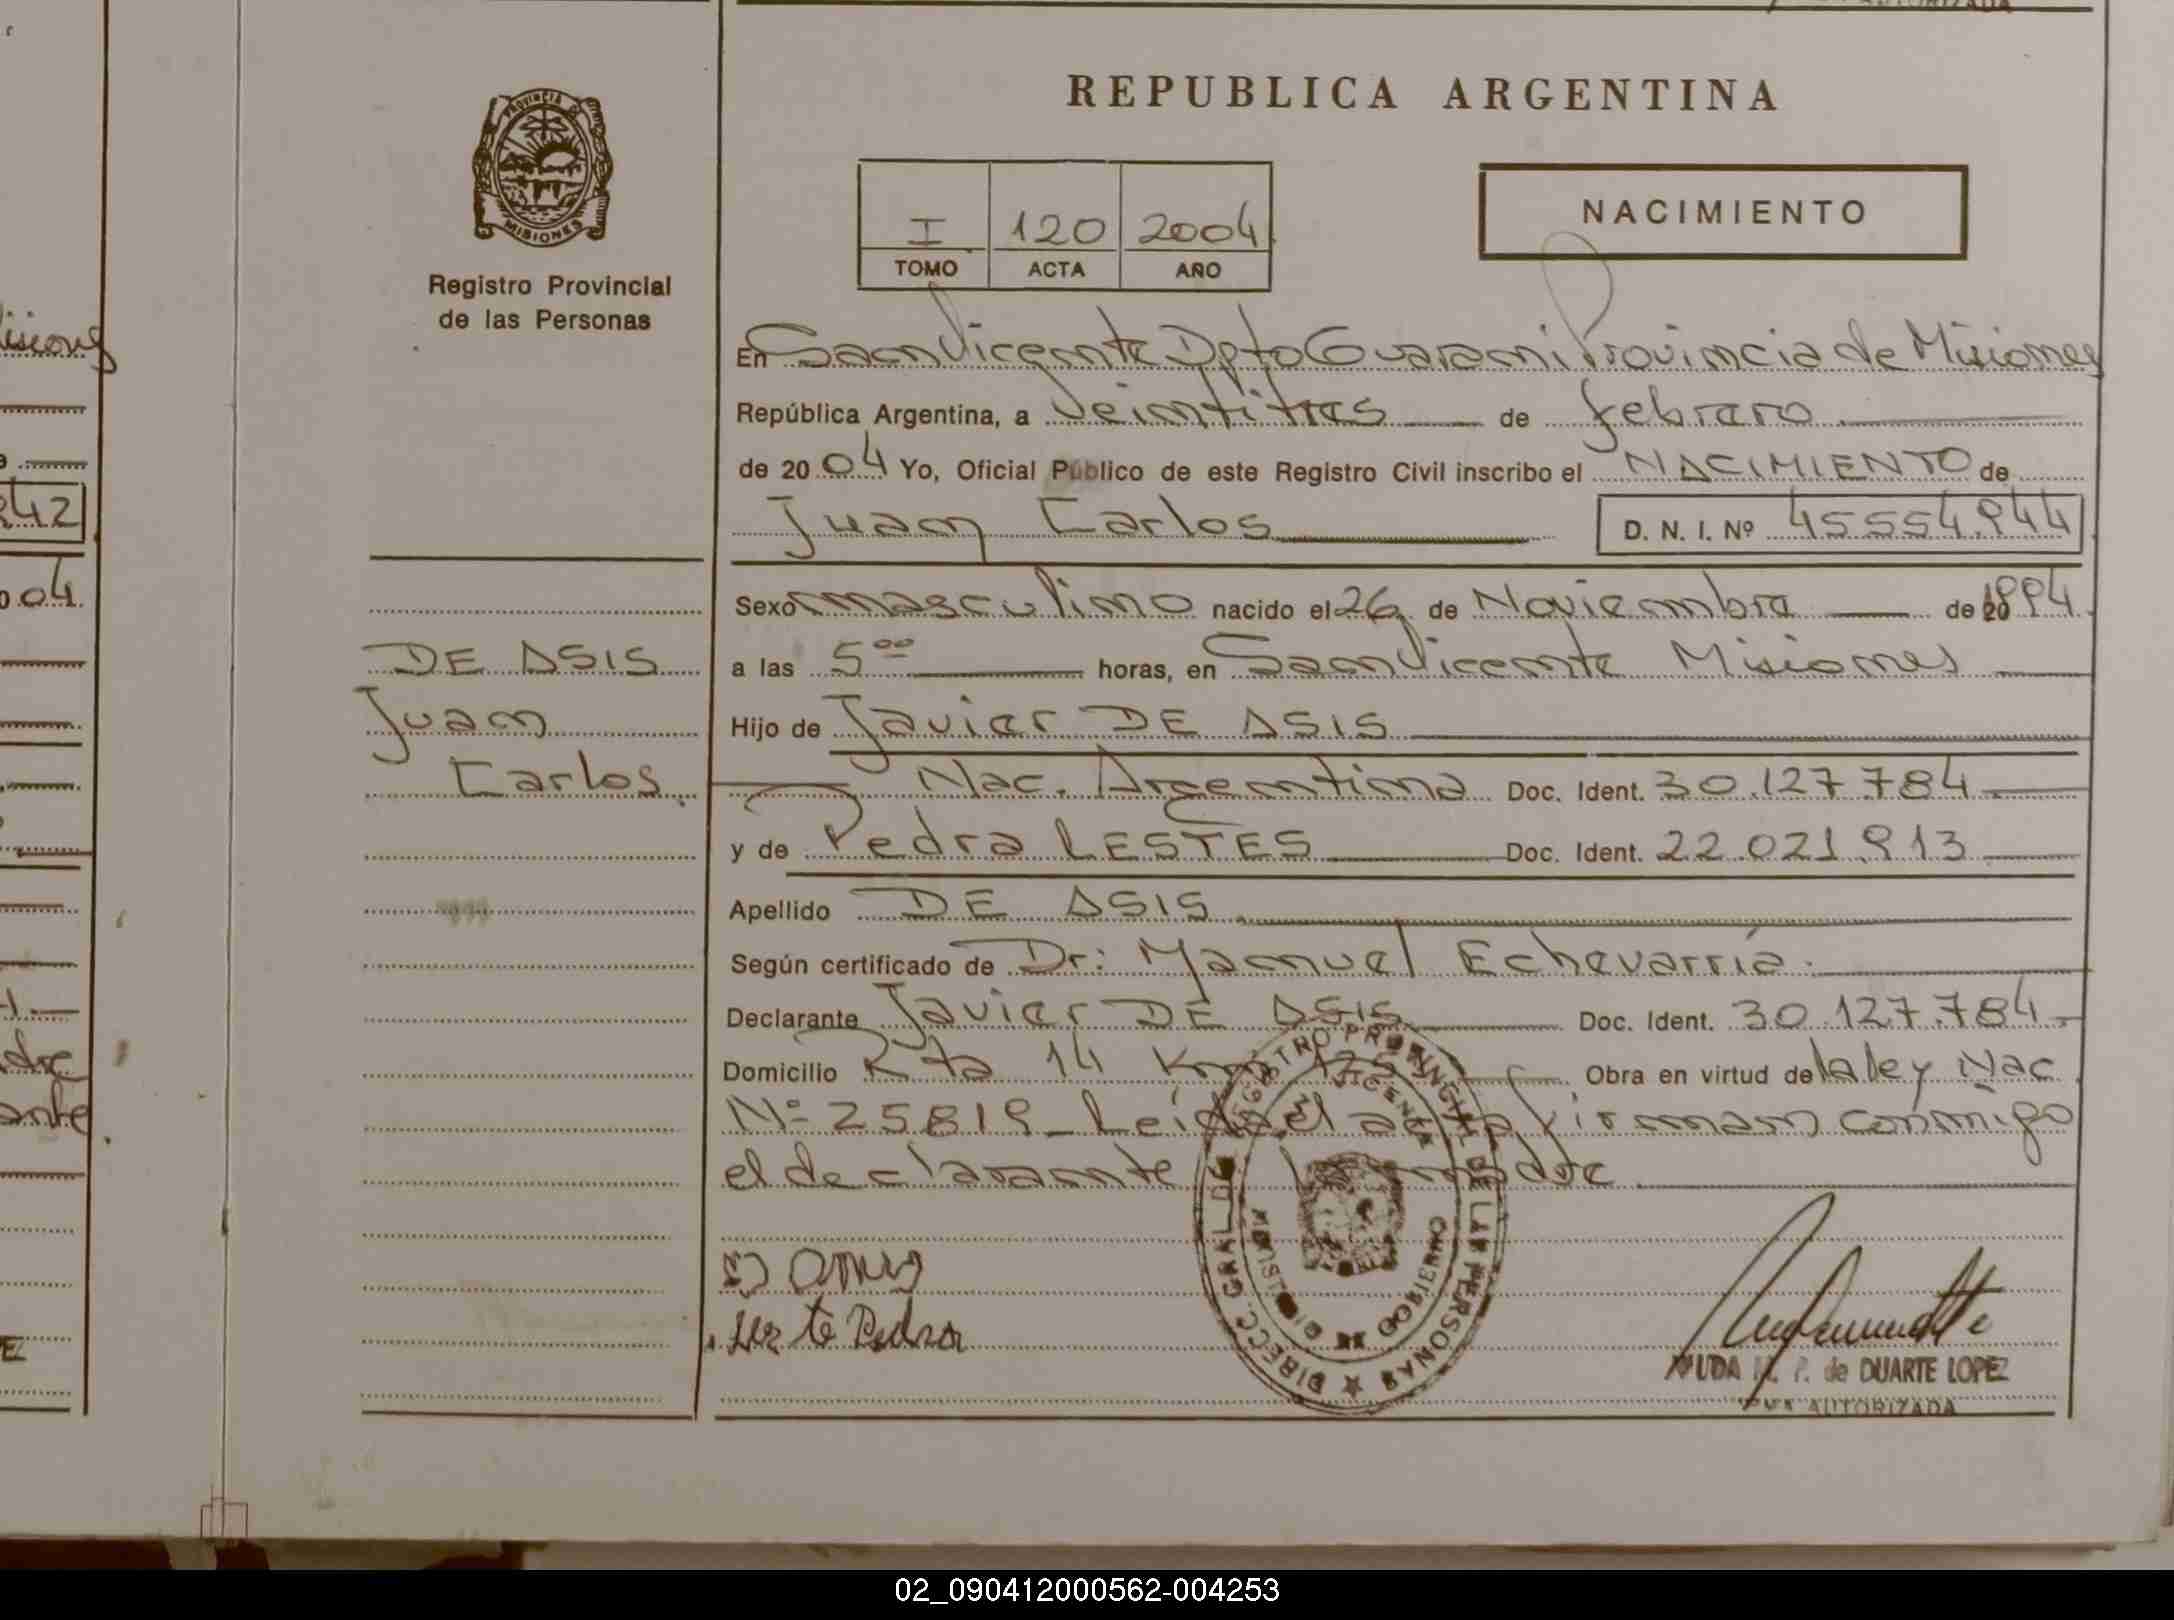 REPUBLICA ARGENTINA
PROVINCIA DE
MISIONES
Registro Provincial
de las Personas
I 120 2004
TOMO ACTA AÑO
NACIMIENTO
En San Vicente Dpto Guarani Provincia de Misiones
República Argentina, a Veintitres de febrero
de 2004 Yo, Oficial Público de este Registro Civil inscribo el NACIMIENTO de
Juan Carlos D. N. I. Nº 45554.944
Sexo masculino nacido el 26 de Noviembre de 1994
a las 5 00 horas, en San Vicente Misiones
Hijo de Javier DE ASIS
Nac. Argentina Doc. Ident. 30.127.784
y de Pedra LESTES Doc. Ident. 22.021.913
Apellido DE ASIS
Según certificado de Dr: Manuel Echevarría.
Declarante Javier DE ASIS Doc. Ident. 30.127.784
Domicilio Rta 14 Km 1255 Obra en virtud de la ley Nac
Nº 25819 Leída el acta firman conmigo
el declarante madre
DE ASIS
Juan
Carlos
Pedra
REGISTRO PROVINCIAL DE LAS PERSONAS
DIRECC. GRAL DE
MINISTERIO DE GOBIERNO
M. P. de DUARTE LOPEZ
AUTORIZADA
isiones
242
04.
dre
ante
AUTORIZADA
02_090412000562-004253